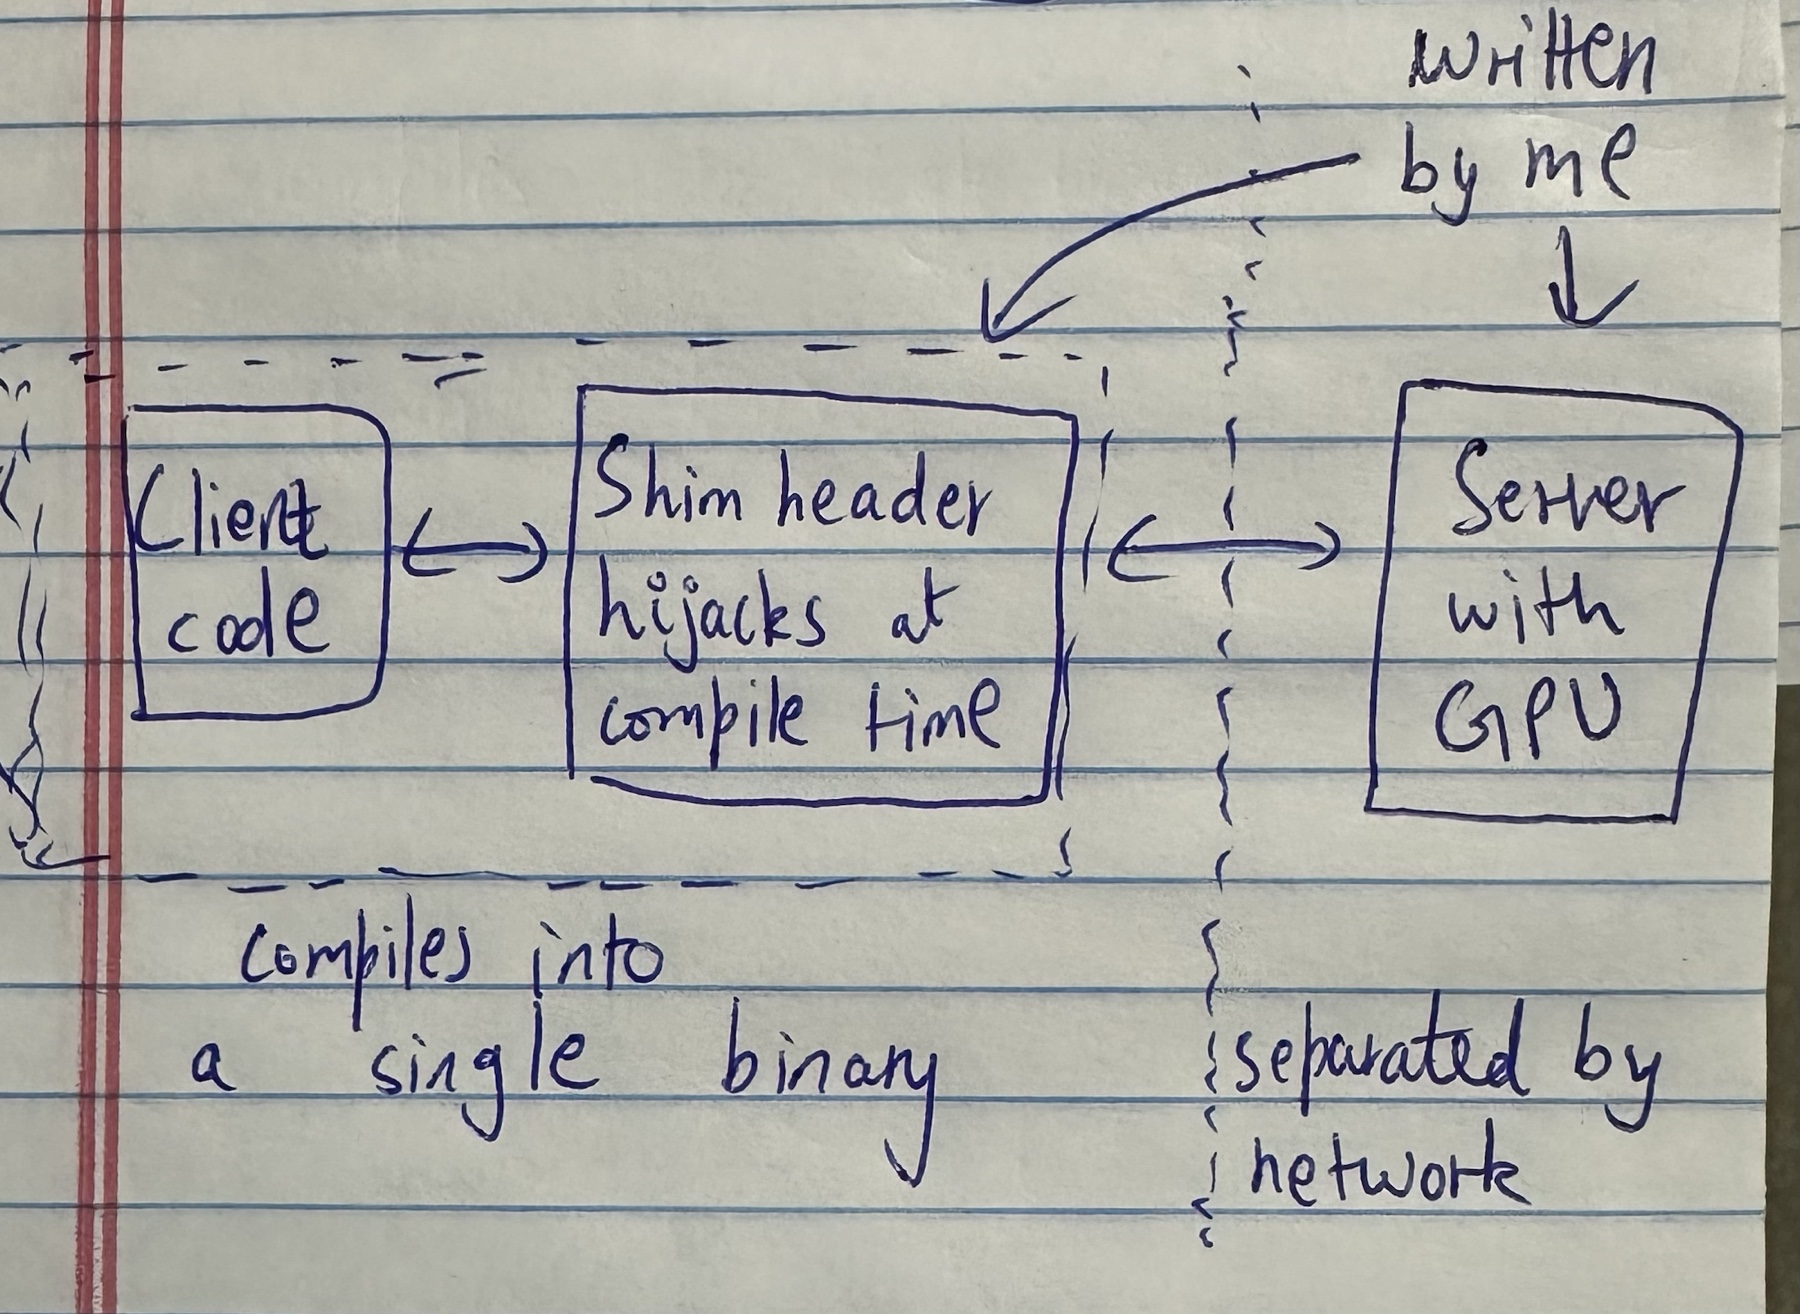 written
by me
Client
code
Shim header
hijacks at
compile time
Server
with
GPU
compiles into
a single binary
separated by
network